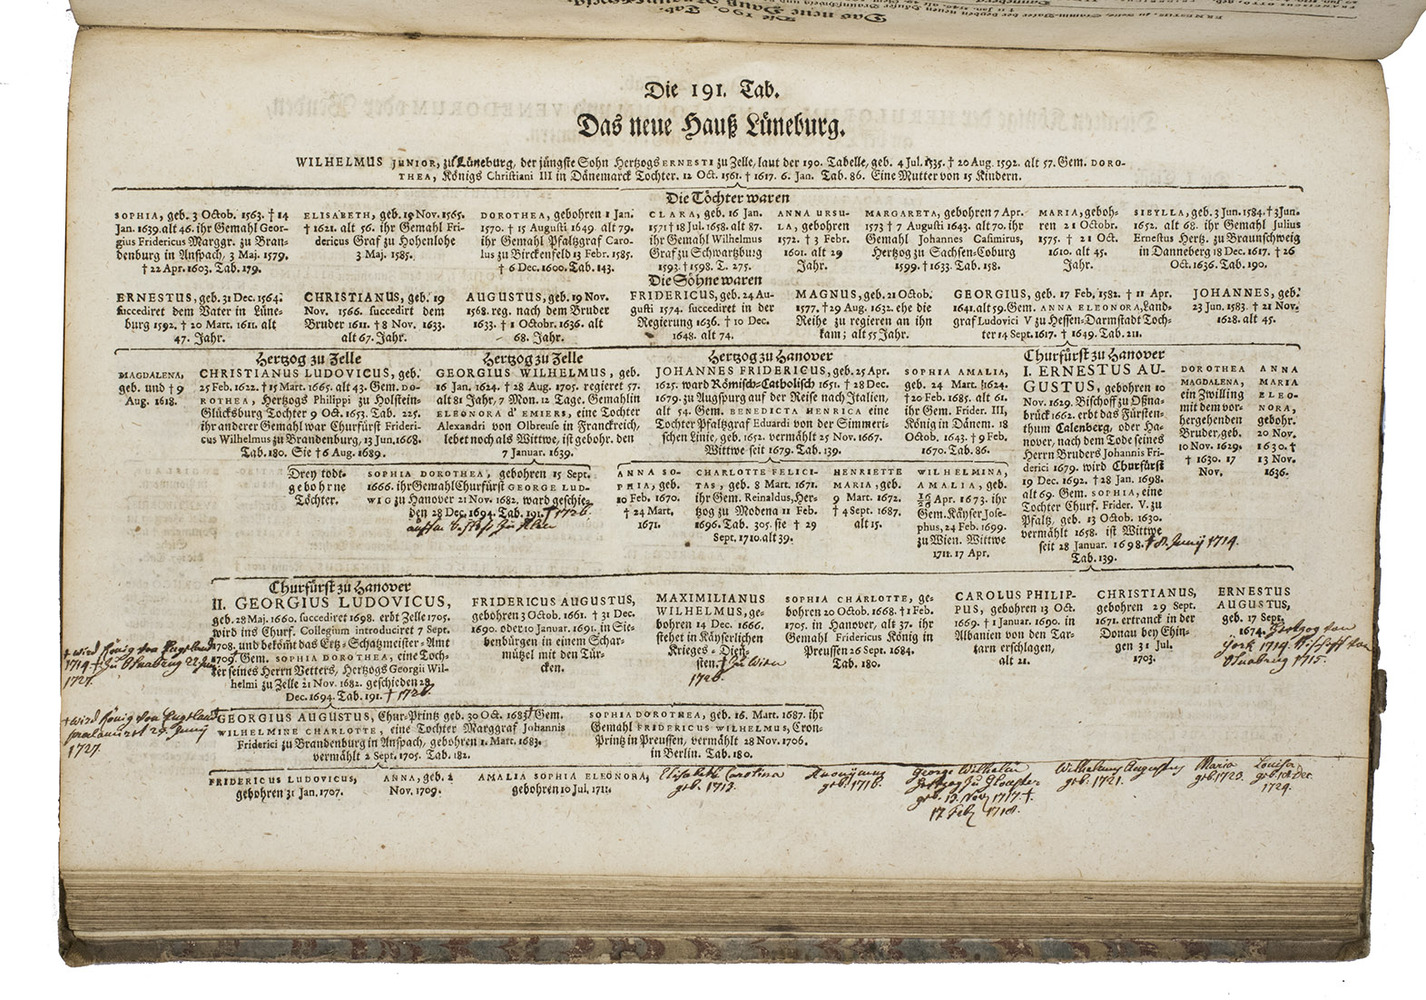 Die 191. Tab.
Das neue Hauß Lüneburg.
WILHELMUS JUNIOR, zu Lüneburg, der jüngste Sohn Hertzogs ERNESTI zu Zelle, laut der 190. Tabelle, geb. 4 Jul. 1535. † 20 Aug. 1592. alt 57. Gem. DORO-
THEA, Königs Christiani III in Dänemarck Tochter. 12 Oct. 1561. † 1617. 6. Jan. Tab. 86. Eine Mutter von 15 Kindern.
Die Töchter waren
SOPHIA, geb. 3 Octob. 1563. † 14
Jan. 1639. alt 46. ihr Gemahl Geor-
gius Fridericus Marggr. zu Bran-
denburg in Anspach, 3 Maj. 1579.
† 22 Apr. 1603. Tab. 179.
ELISABETH, geb. 19 Nov. 1565.
† 1621. alt 56. ihr Gemahl Fri-
dericus Graf zu Hohenlohe
3 Maj. 1585.
DOROTHEA, gebohren 1 Jan.
1570. † 15 Augusti 1649 alt 79.
ihr Gemahl Pfaltzgraf Caro-
lus zu Birckenfeld 13 Febr. 1585.
† 6 Dec. 1600. Tab. 143.
CLARA, geb. 16 Jan.
1571 † 18 Jul. 1658. alt 87.
ihr Gemahl Wilhelmus
Graf zu Schwartzburg
1593. † 1598. T. 275.
ANNA URSU-
LA, gebohren
1572. † 3 Febr.
1601. alt 29
Jahr.
MARGARETA, gebohren 7 Apr.
1573 † 7 Augusti 1643. alt 70. ihr
Gemahl Johannes Casimirus,
Hertzog zu Sachsen-Coburg
1599. † 1633. Tab. 158.
MARIA, geboh-
ren 21 Octobr.
1575. † 21 Oct.
1610. alt 45.
Jahr.
SIBYLLA, geb. 3 Jun. 1584. † 3 Jun.
1652. alt 68. ihr Gemahl Julius
Ernestus Hertz. zu Braunschweig
in Danneberg 18 Dec. 1617. † 26
Oct. 1636. Tab. 190.
Die Söhne waren
ERNESTUS, geb. 31 Dec. 1564.
succediret dem Vater in Lüne-
burg 1592. † 20 Mart. 1611. alt
47. Jahr.
CHRISTIANUS, geb. 19
Nov. 1566. succedirt dem
Bruder 1611. † 8 Nov. 1633.
alt 67. Jahr.
AUGUSTUS, geb. 19 Nov.
1568. reg. nach dem Bruder
1633. † 1 Octobr. 1636. alt
68. Jahr.
FRIDERICUS, geb. 24 Au-
gusti 1574. succediret in der
Regierung 1636. † 10 Dec.
1648. alt 74.
MAGNUS, geb. 21 Octob.
1577. † 29 Aug. 1632. ehe die
Reihe zu regieren an ihn
kam; alt 55 Jahr.
GEORGIUS, geb. 17 Feb. 1582. † 11 Apr.
1641. alt 59. Gem. ANNA ELEONORA, Land-
graf Ludovici V zu Hessen-Darmstadt Toch-
ter 14 Sept. 1617. † 1649. Tab. 211.
JOHANNES, geb.
23 Jun. 1583. † 21 Nov.
1628. alt 45.
MAGDALENA,
geb. und † 9
Aug. 1618.
Hertzog zu Zelle
CHRISTIANUS LUDOVICUS, geb.
25 Feb. 1622. † 15 Mart. 1665. alt 43. Gem. DO-
ROTHEA, Hertzogs Philippi zu Holstein-
Glücksburg Tochter 9 Oct. 1653. Tab. 225.
ihr anderer Gemahl war Churfürst Frideri-
cus Wilhelmus zu Brandenburg, 13 Jun. 1668.
Tab. 180. Sie † 6 Aug. 1689.
Hertzog zu Zelle
GEORGIUS WILHELMUS, geb.
16 Jan. 1624. † 28 Aug. 1705. regieret 57.
alt 81 Jahr, 7 Mon. 12 Tage. Gemahlin
ELEONORA d' EMIERS, eine Tochter
Alexandri von Olbreuse in Franckreich,
lebet noch als Wittwe, ist gebohr. den
7 Januar. 1639.
Hertzog zu Hanover
JOHANNES FRIDERICUS, geb. 25 Apr.
1625. ward Römisch-Catholisch 1651. † 28 Dec.
1679. zu Augspurg auf der Reise nach Italien,
alt 54. Gem. BENEDICTA HENRICA eine
Tochter Pfaltzgraf Eduardi von der Simmeri-
schen Linie, geb. 1652. vermählt 25 Nov. 1667.
Wittwe seit 1679. Tab. 139.
SOPHIA AMALIA,
geb. 24 Mart. 1624.
† 20 Feb. 1685. alt 61.
ihr Gem. Frider. III,
König in Dänem. 18
Octob. 1643. † 9 Feb.
1670. Tab. 86.
Churfürst zu Hanover
I. ERNESTUS AU-
GUSTUS, gebohren 10
Nov. 1629. Bischoff zu Oßna-
brück 1662. erbt das Fürsten-
thum Calenberg, oder Ha-
nover, nach dem Tode seines
Herrn Bruders Johannis Fri-
derici 1679. wird Churfürst
19 Dec. 1692. † 28 Jan. 1698.
alt 69. Gem. SOPHIA, eine
Tochter Churf. Frider. V. zu
Pfaltz, geb. 13 Octob. 1630.
vermählt 1658. ist Wittwe
seit 28 Januar. 1698. † 8. Junij 1714.
Tab. 139.
DOROTHEA
MAGDALENA,
ein Zwilling
mit dem vor-
hergehenden
Bruder, geb.
10 Nov. 1629.
† 1630. 17
Nov.
ANNA
MARIA
ELEO-
NORA,
gebohr.
20 Nov.
1630. †
13 Nov.
1636.
Drey todt-
gebohrne
Töchter.
SOPHIA DOROTHEA, gebohren 15 Sept.
1666. ihr Gemahl Churfürst GEORGE LUD-
WIG zu Hanover 21 Nov. 1682. ward geschie-
den 28 Dec. 1694. Tab. 191. † 1726.
ANNA SO-
PHIA, geb.
10 Feb. 1670.
† 24 Mart.
1671.
CHARLOTTE FELICI-
TAS, geb. 8 Mart. 1671.
ihr Gem. Reinaldus, Her-
tzog zu Modena 11 Feb.
1696. Tab. 305. sie † 29
Sept. 1710. alt 39.
HENRIETTE
MARIA, geb.
9 Mart. 1672.
† 4 Sept. 1687.
alt 15.
WILHELMINA,
AMALIA, geb.
16/26 Apr. 1673. ihr
Gem. Käyser Jose-
phus, 24 Feb. 1699.
zu Wien. Wittwe
1711. 17 Apr.
Churfürst zu Hanover
II. GEORGIUS LUDOVICUS,
geb. 28 Maj. 1660. succediret 1698. erbt Zelle 1705.
wird ins Churf. Collegium introduciret 7 Sept.
1708. und bekömt das Ertz-Schatzmeister-Amt
1709. Gem. SOPHIA DOROTHEA, eine Toch-
ter seines Herrn Vetters, Hertzogs Georgii Wil-
helmi zu Zelle 21 Nov. 1682. geschieden 28
Dec. 1694. Tab. 191. † 1726.
† wird König von Engelland
1714 † zu Osnabrug 22 Jun.
1727.
FRIDERICUS AUGUSTUS,
gebohren 3 Octob. 1661. † 31 Dec.
1690. oder 10 Januar. 1691. in Sie-
benbürgen in einem Schar-
mützel mit den Tür-
cken.
MAXIMILIANUS
WILHELMUS, ge-
bohren 14 Dec. 1666.
stehet in Käyserlichen
Krieges-Dien-
sten. † zu Wien
1726.
SOPHIA CHARLOTTE, ge-
bohren 20 Octob. 1668. † 1 Feb.
1705. in Hanover, alt 37. ihr
Gemahl Fridericus König in
Preussen 26 Sept. 1684.
Tab. 180.
CAROLUS PHILIP-
PUS, gebohren 13 Oct.
1669. † 1 Januar. 1690. in
Albanien von den Tar-
tarn erschlagen,
alt 21.
CHRISTIANUS,
gebohren 29 Sept.
1671. ertranck in der
Donau bey Ehin-
gen 31 Jul.
1703.
ERNESTUS
AUGUSTUS,
geb. 17 Sept.
1674. Hertzog von
York 1714. Bischoff von
Osnabrug 1715.
† wird König von Engelland
proclamirt 25. Junij
1727.
GEORGIUS AUGUSTUS, Chur-Printz geb. 30 Oct. 1683. † Gem.
WILHELMINE CHARLOTTE, eine Tochter Marggraf Johannis
Friderici zu Brandenburg in Anspach, gebohren 1. Mart. 1683.
vermählt 2 Sept. 1705. Tab. 182.
SOPHIA DOROTHEA, geb. 16. Mart. 1687. ihr
Gemahl FRIDERICUS WILHELMUS, Cron-
Printz in Preussen, vermählt 28 Nov. 1706.
in Berlin. Tab. 180.
FRIDERICUS LUDOVICUS,
gebohren 31 Jan. 1707.
ANNA, geb. 2
Nov. 1709.
AMALIA SOPHIA ELEONORA,
gebohren 10 Jul. 1711.
Elisabeth Carolina
geb. 1713.
Anonymus
geb. 1716.
George Wilhelm
Hertzog zu Glouster
geb. 13. Nov. 1717 †.
17 Feb. 1718.
Wilhelmus Augustus
geb. 1721.
Maria
geb. 1723.
Louisa
geb. 18. Dec.
1724.